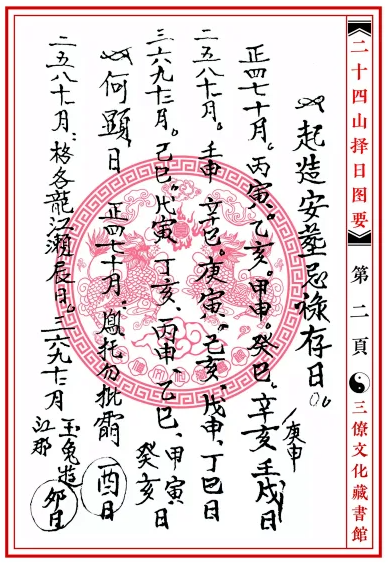 二十四山择日图要
第二頁
三僚文化藏書館
起造安塟忌祿存日。
正四七十月。丙寅、乙亥。甲申。癸巳。辛亥壬戌日
庚申
二五八十一月。壬申 辛巳。庚寅。己亥、戊申、丁巳日
三六九十二月。己巳。戊寅 丁亥、丙申、乙巳、甲寅、癸亥日
何顯日 正四七十月：鳳托勿批霜 酉日
二五八十一月：格各龍江瀨辰日。三六九十二月 玉兔遊江那 卯日